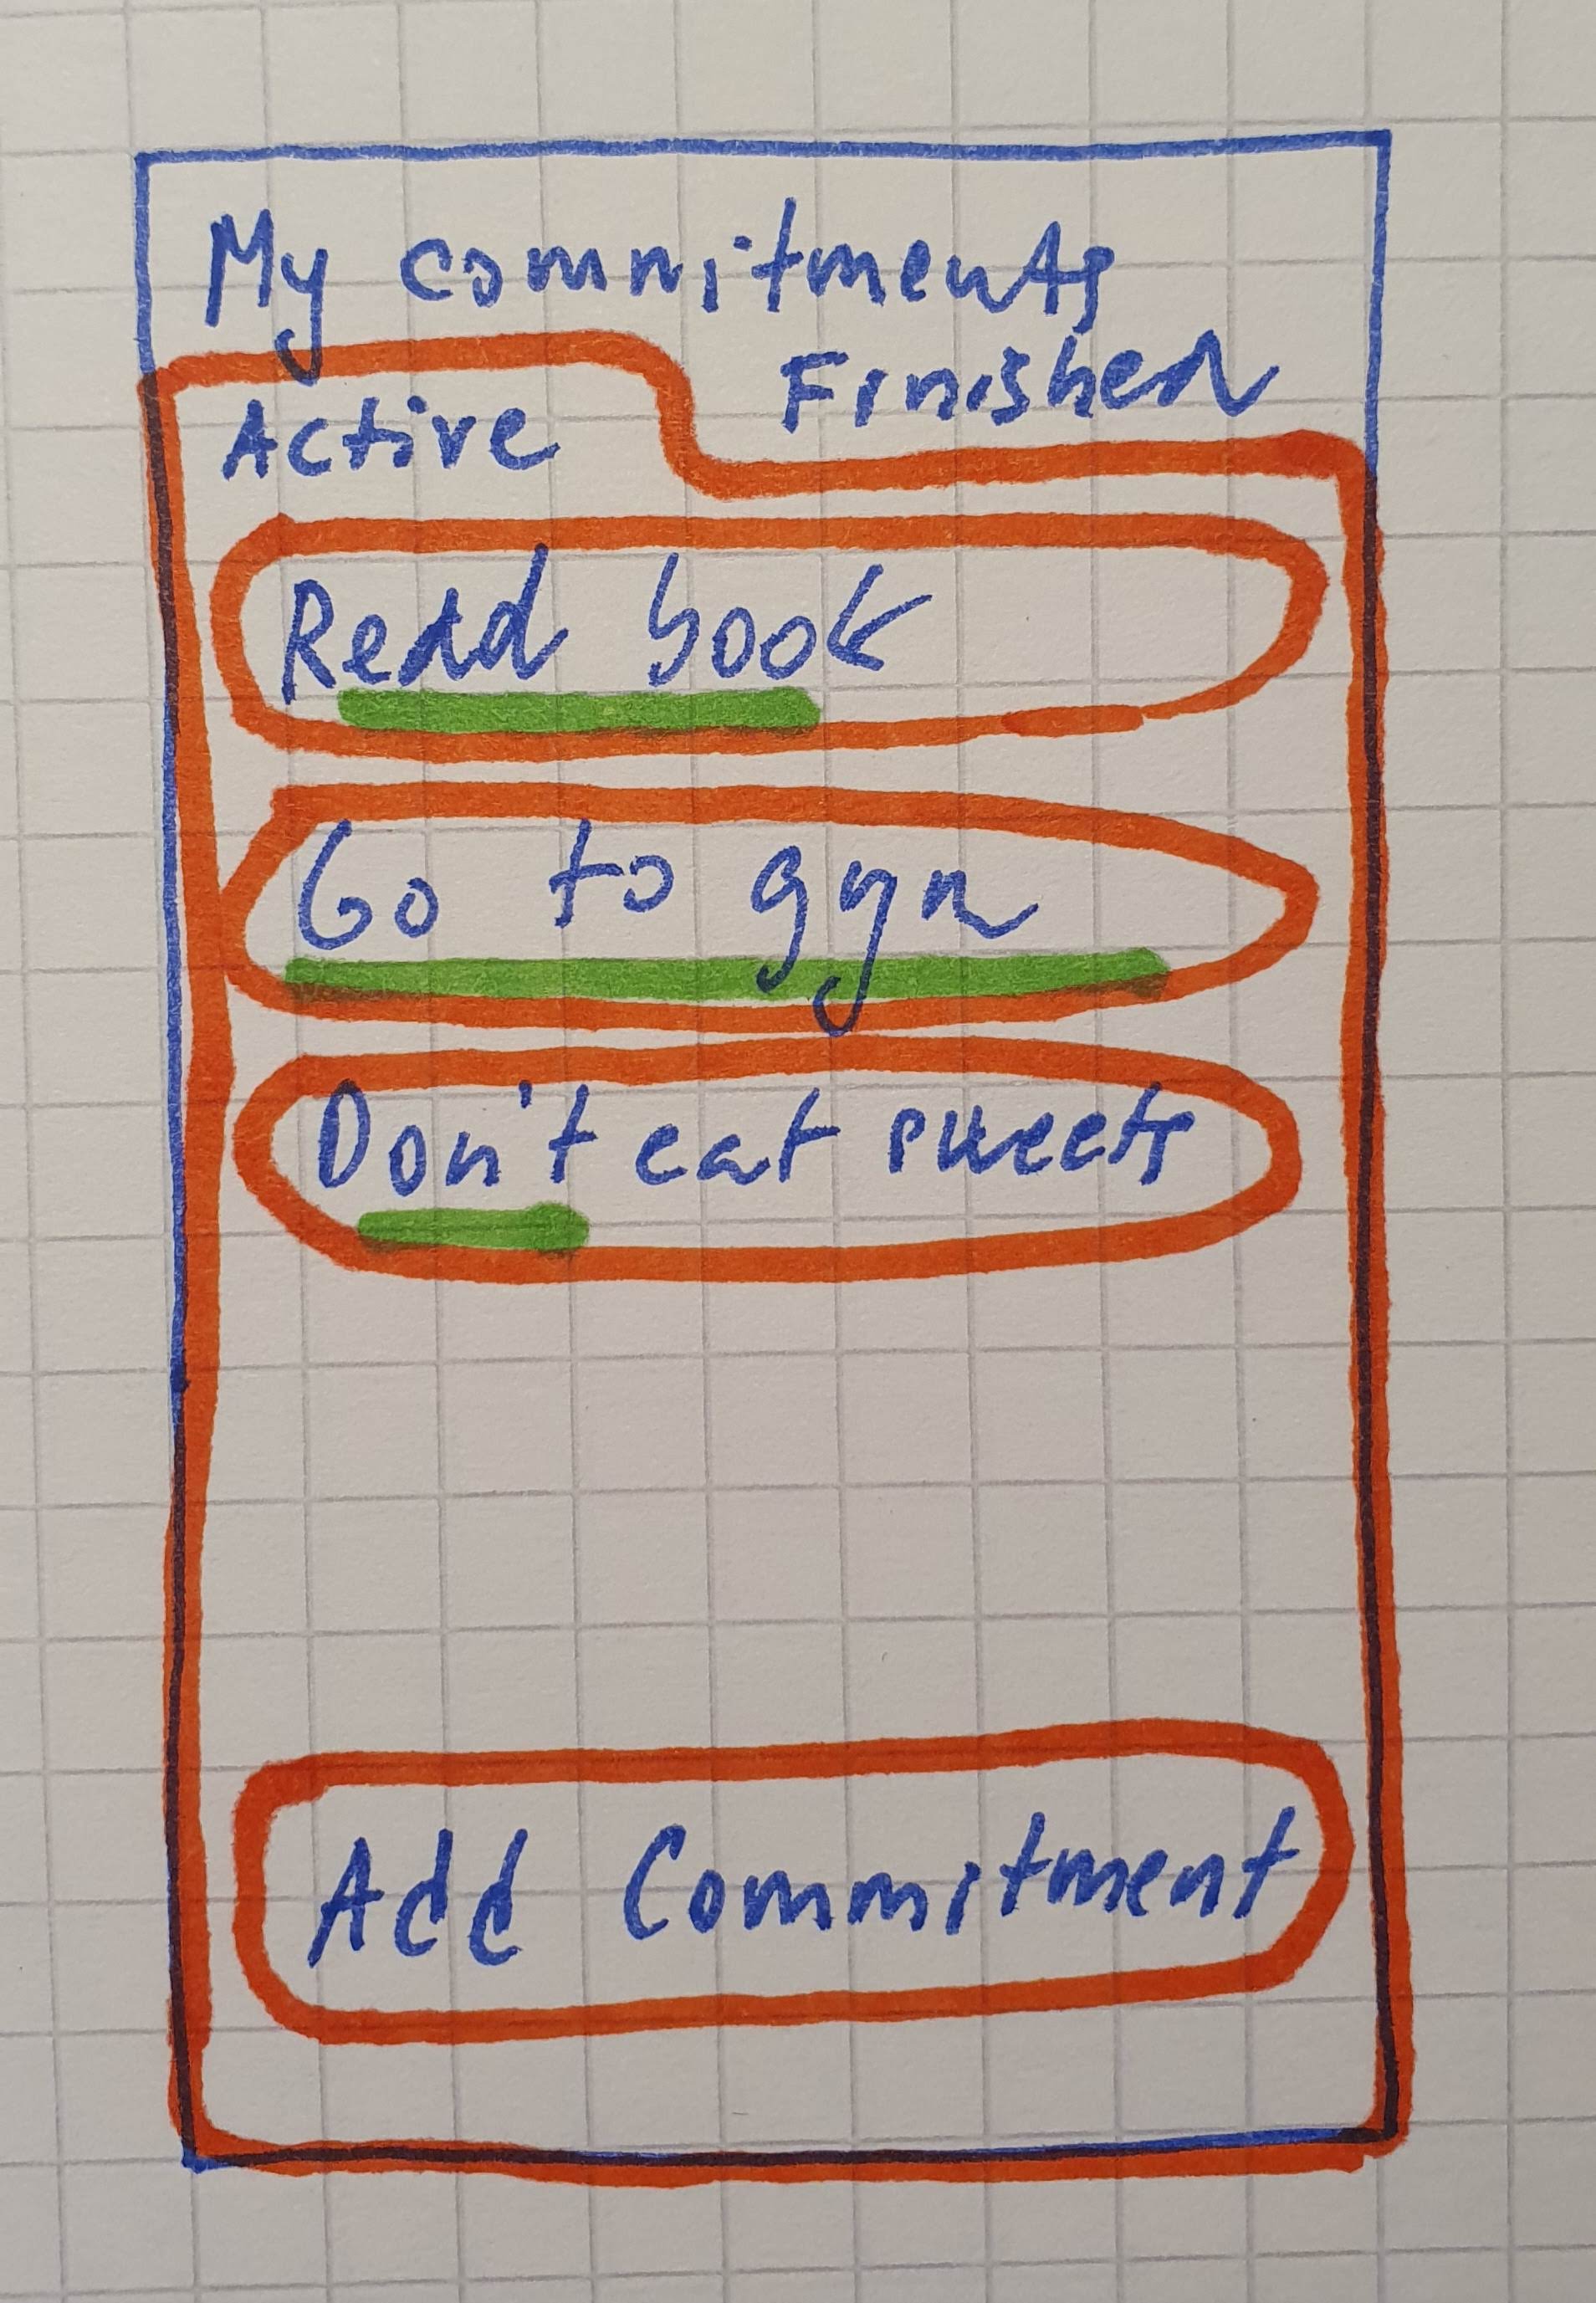 My commitments
Active
Finished
Read book
Go to gym
Don't eat sweets
Add Commitment